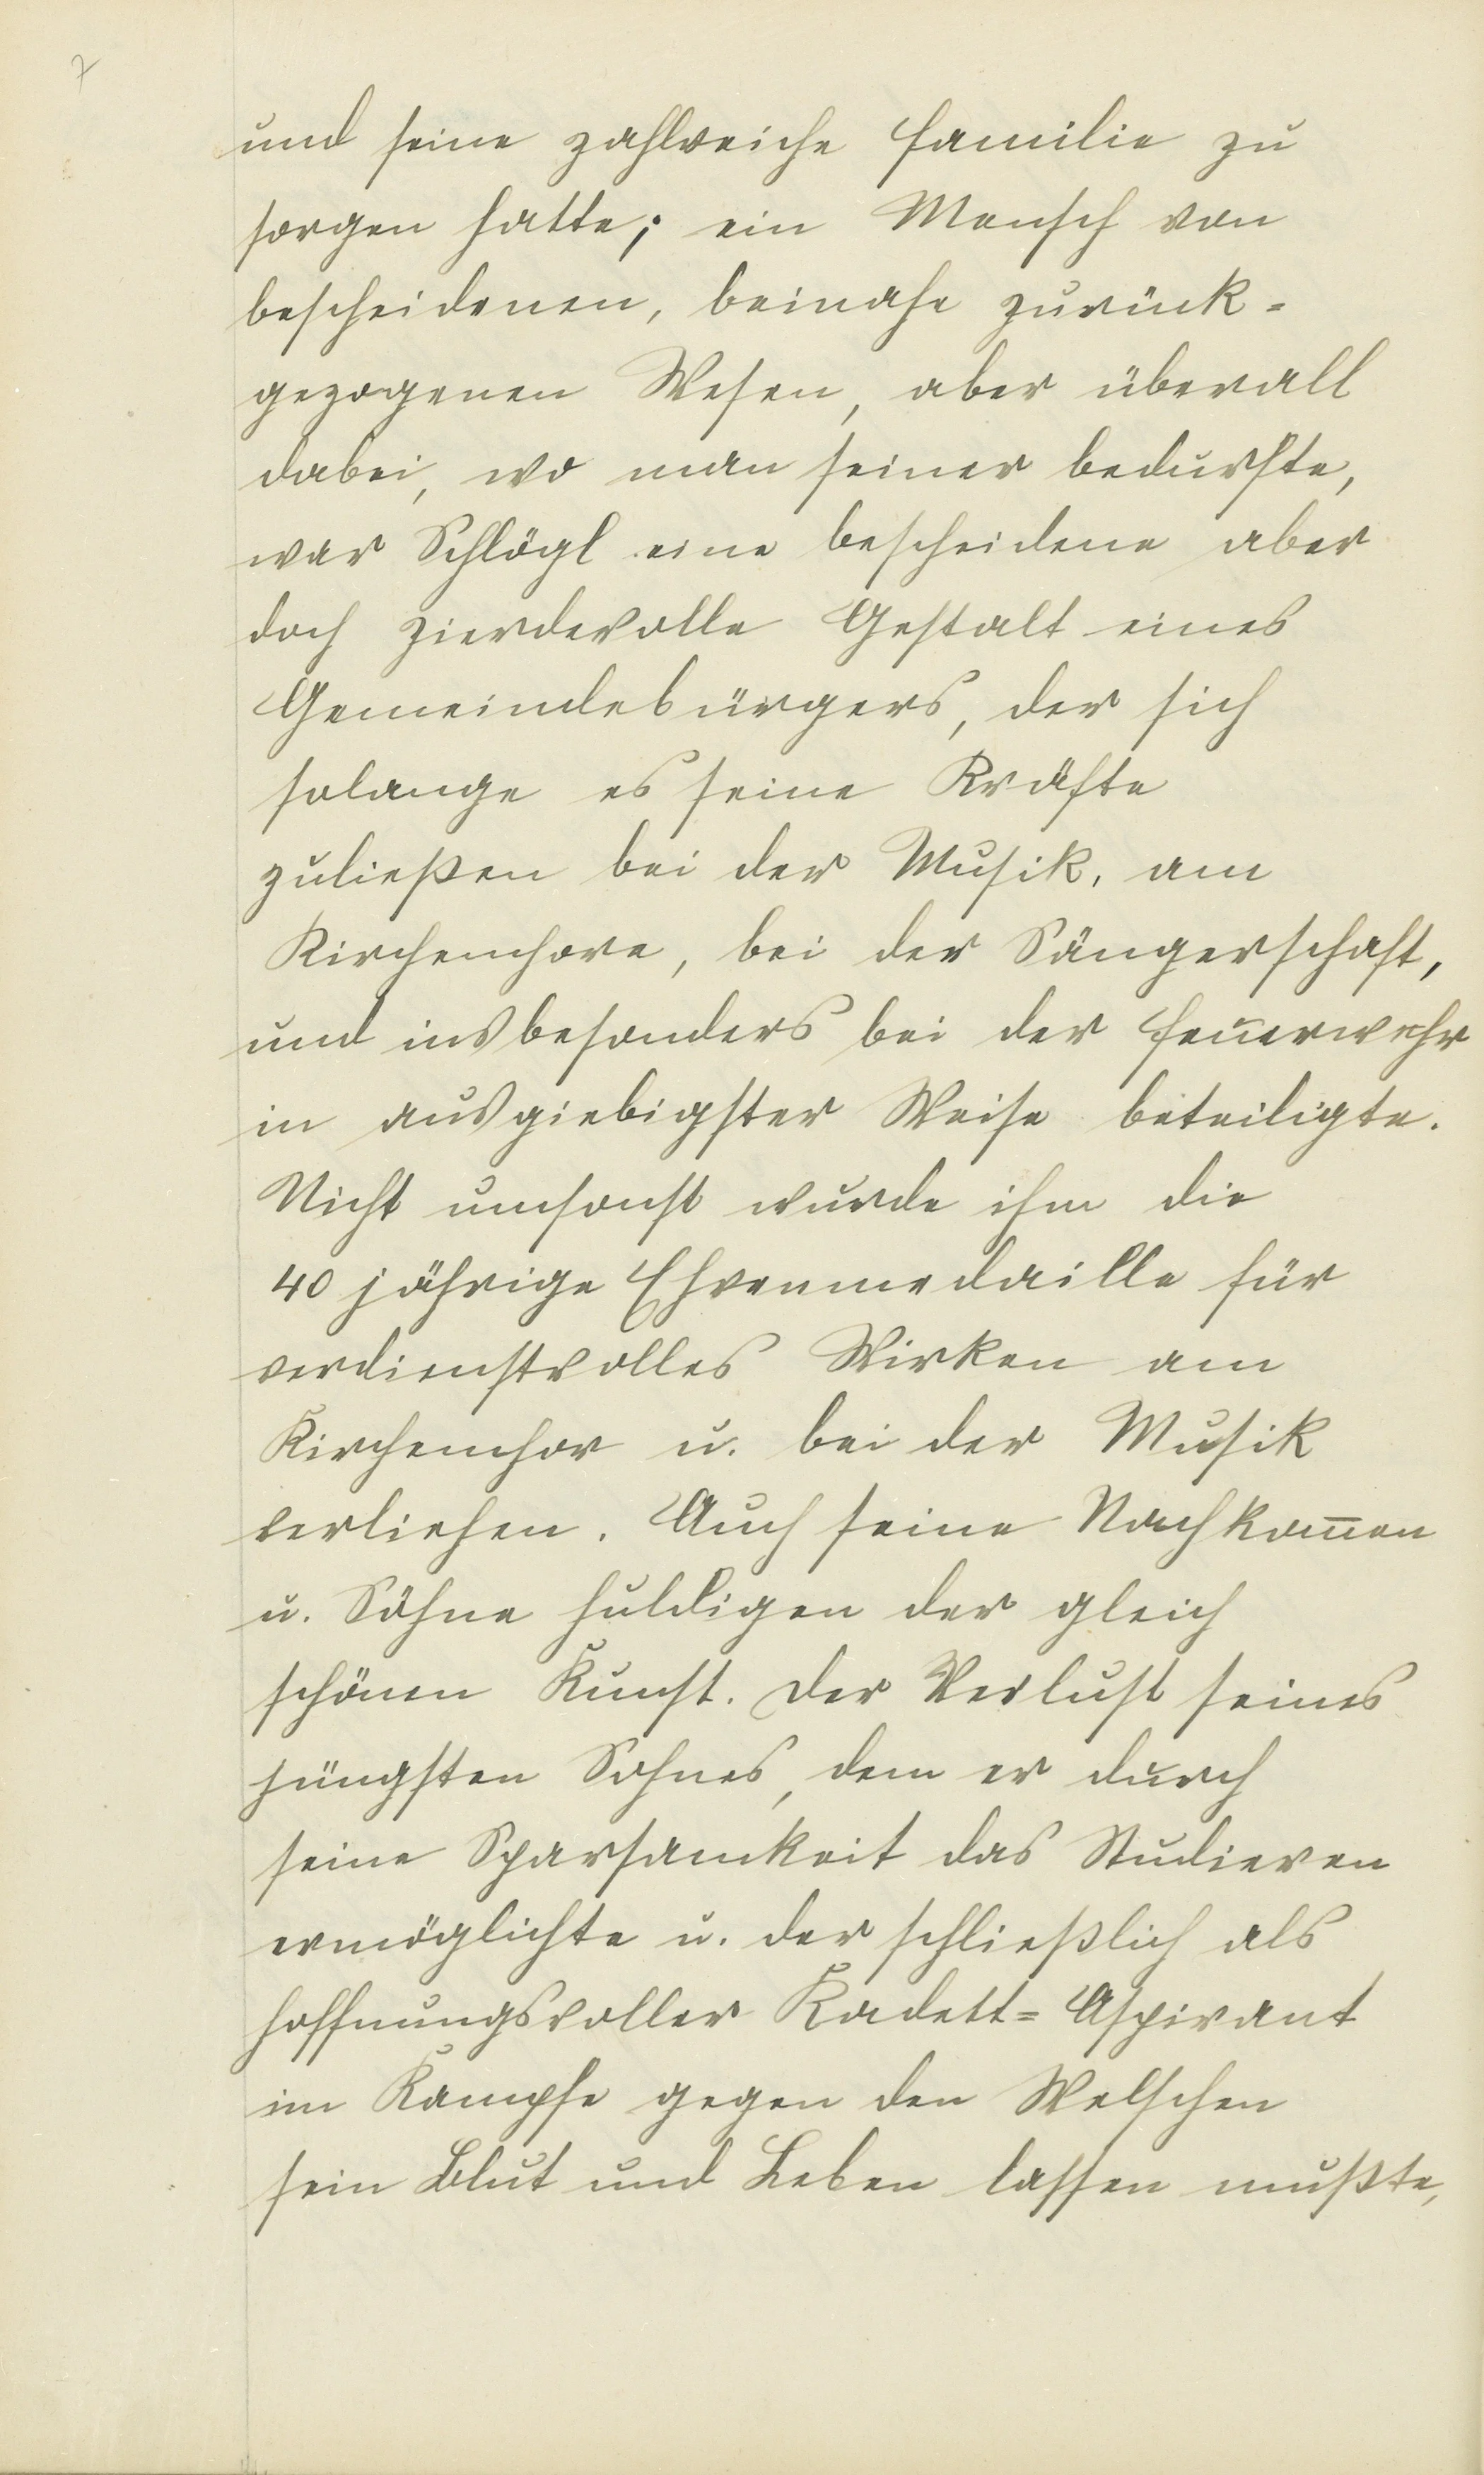 7
und seine zahlreiche Familie zu
sorgen hatte; ein Mensch von
bescheidenen, beinahe zurück=
gezogenen Wesen, aber überall
dabei, wo man seiner bedurfte,
war Schlögl eine bescheidene aber
doch zierdevolle Gestalt eines
Gemeindebürgers, der sich
solange es seine Kräfte
zuließen bei der Musik, am
Kirchenchore, bei der Sängerschaft,
und insbesonders bei der Feuerwehr
in ausgiebigster Weise beteiligte.
Nicht umsonst wurde ihm die
40 jährige Ehrenmedaille für
verdienstvolles Wirken am
Kirchenchor u. bei der Musik
verliehen. Auch seine Nachkom̅en
u. Söhne huldigen der gleich
schönen Kunst. Der Verlust seines
jüngsten Sohnes, dem er durch
seine Sparsamkeit das Studieren
ermöglichte u. der schließlich als
hoffnungsvoller Kadett=Aspirant
im Kampfe gegen den Welschen
sein Blut und Leben lassen mußte,